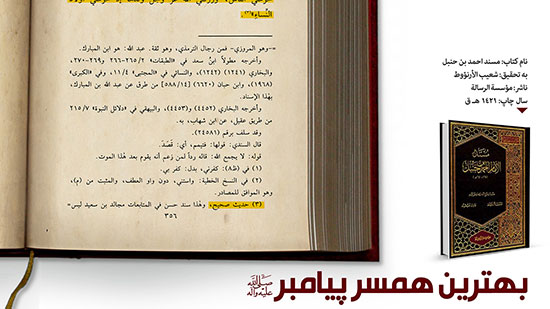 النِّساءِ»(٣).
=وهو المروزي- فمن رجال الترمذي، وهو ثقة. عبد الله: هو ابن المبارك.
وأخرجه مطولاً ابنُ سعد في «الطبقات» ٢٦٥/٢-٢٦٦ و٢٦٩-٢٧٠،
والبخاري (١٢٤١) (١٢٤٢)، والنسائي في «المجتبى» ١١/٤، وفي «الكبرى»
(١٩٦٨)، وابن حبان (٦٦٢٠) [٥٨٨/١٤] من طرق عن عبد الله بن المبارك،
بهذا الإسناد.
وأخرجه البخاري (٤٤٥٢) و(٤٤٥٣)، والبيهقي في «دلائل النبوة» ٢١٥/٧
من طريق عقيل، عن ابن شهاب، به.
وقد سلف برقم (٢٤٥٨١).
قال السندي: قولها: فتيمم، أي: قَصَدَ.
قوله: لا يجمع الله: قاله رداً لمن زعم أنه يقوم بعد هذا الموت.
(١) في (ظ٨): كفرتي، بدل: كفر بي.
(٢) في النسخ الخطية: واستني، دون واو العطف، والمثبت من (م)،
وهو الموافق للمصادر.
(٣) حديث صحيح، وهذا سند حسن في المتابعات مجالد بن سعيد ليس=
٣٥٦
نام کتاب: مسند احمد بن حنبل
به تحقیق: شعیب الأرنؤوط
ناشر: مؤسسة الرسالة
سال چاپ: ١٤٢١ هـ ق
مسند
الإمام أحمد بن حنبل
بهترین همسر پیامبر صلی الله علیه وآله